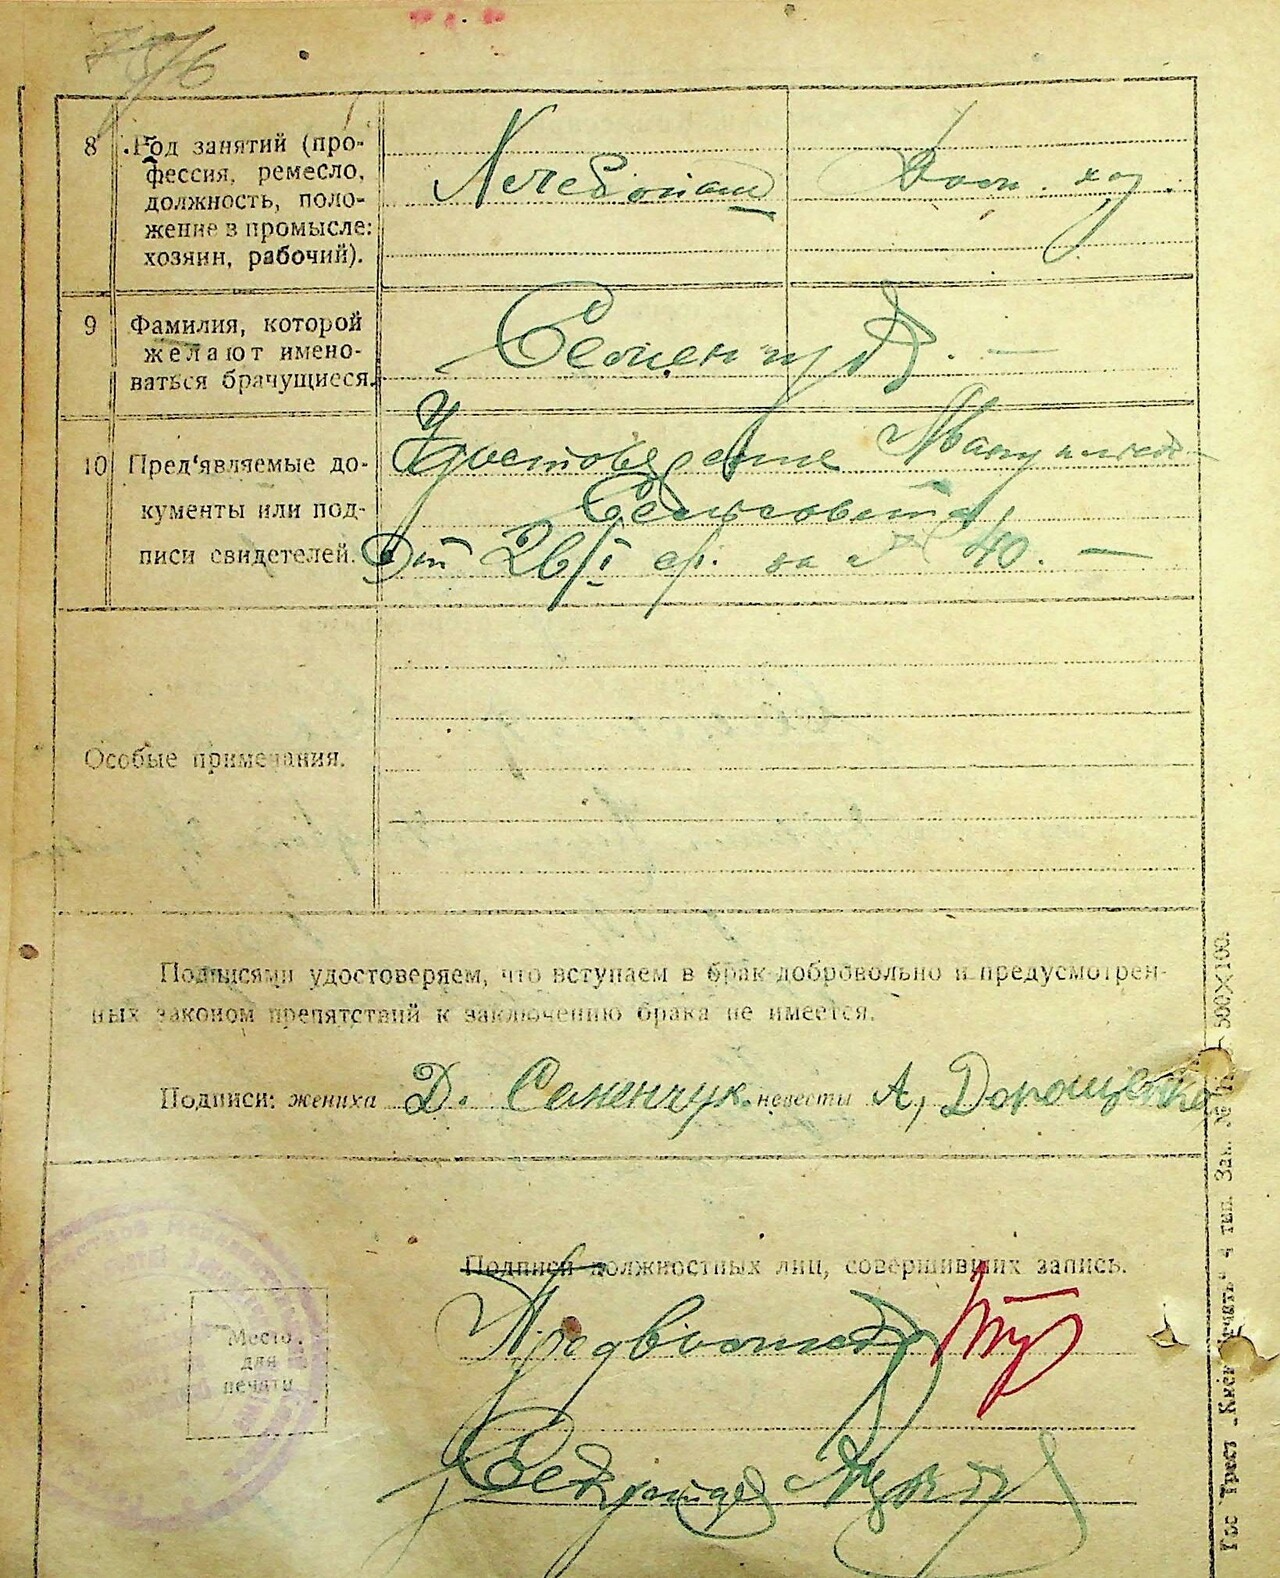 8 Род занятий (про-
фессия, ремесло,
должность, поло-
жение в промысле:
хозяин, рабочий).
Хлебопаш Дом. хоз.
9 Фамилия, которой
желают имено-
ваться брачущиеся.
Семенчук. —
10 Пред'являемые до-
кументы или под-
писи свидетелей.
Удостоверение
Сельсовета
От 26/I с/г. за № 40. —
Особые примечания.
Подписями удостоверяем, что вступаем в брак добровольно и предусмотрен-
ных законом препятствий к заключению брака не имеется.
Подписи: жениха Д. Семенчук. невесты А, Дорощенко
Подписи должностных лиц, совершивших запись.
Место
для
печати
500×100.